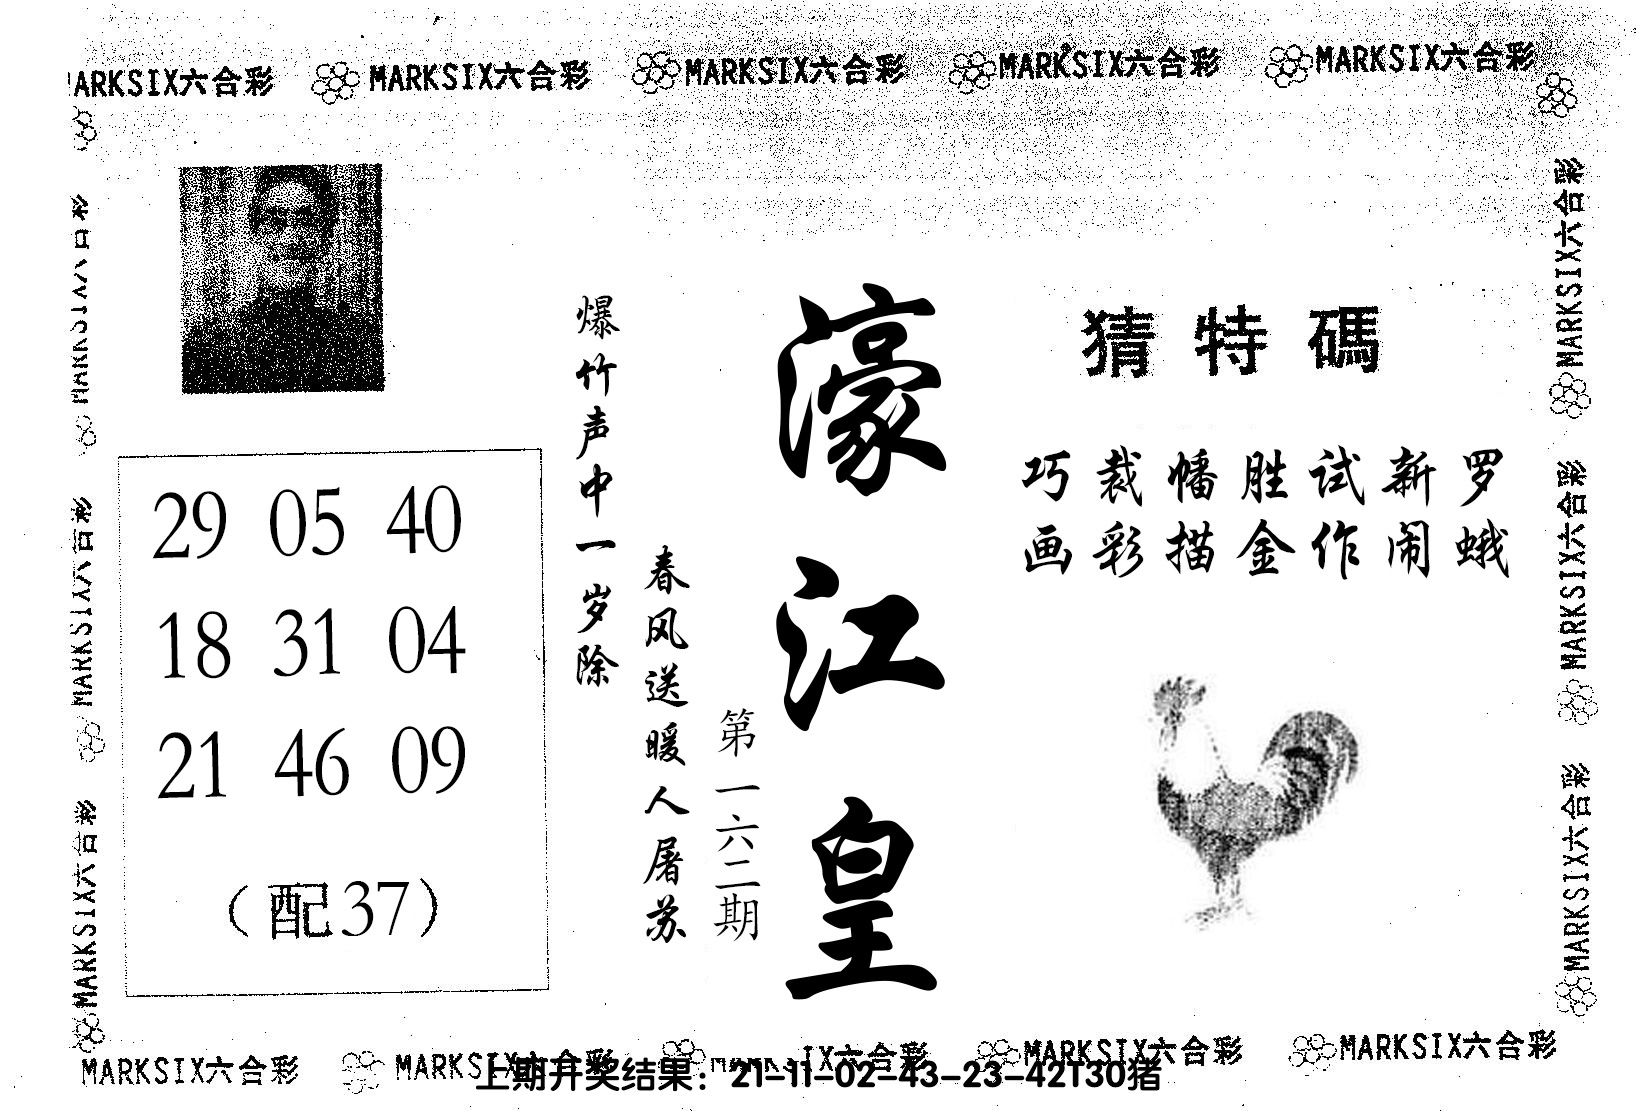 MARKSIX六合彩 MARKSIX六合彩 MARKSIX六合彩 MARKSIX六合彩 MARKSIX六合彩
猜特碼
巧裁幡胜试新罗
画彩描金作闹蛾
濠江皇
第一六二期
爆竹声中一岁除
春风送暖人屠苏
29 05 40
18 31 04
21 46 09
(配37)
MARKSIX六合彩
MARKSIX六合彩
MARKSIX六合彩
MARKSIX六合彩
MARKSIX六合彩
MARKSIX六合彩
MARKSIX六合彩 MARKSIX六合彩 MARKSIX六合彩 MARKSIX六合彩
上期开奖结果：21-11-02-43-23-42T30猪